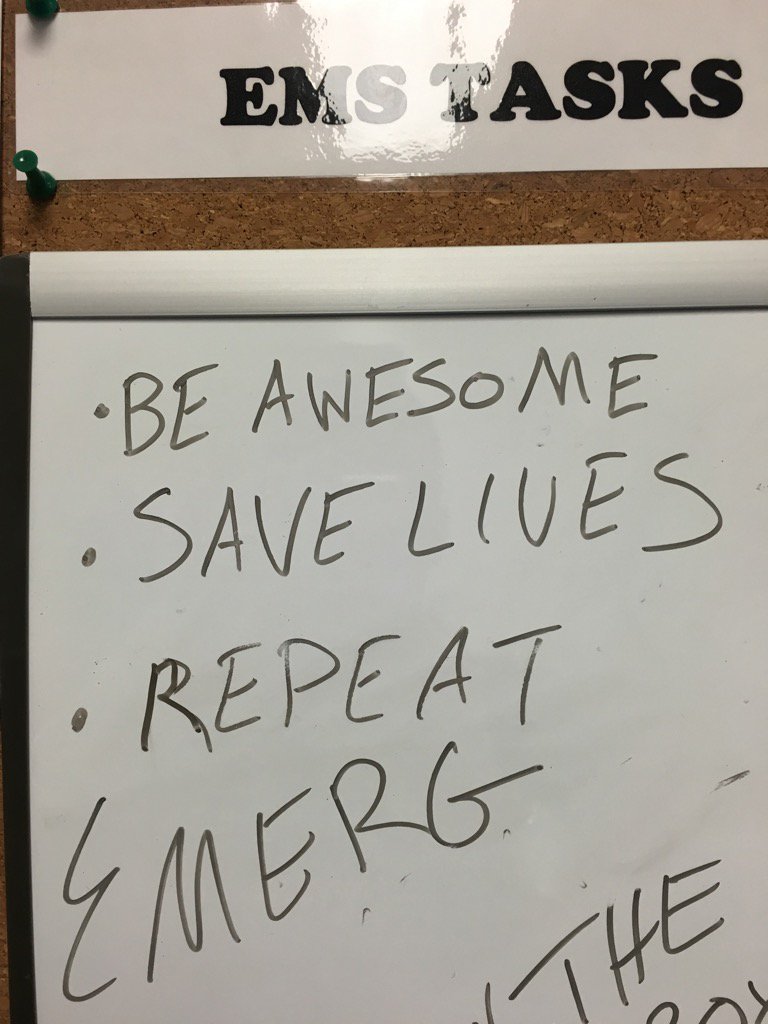 EMS TASKS
• BE AWESOME
• SAVE LIVES
• REPEAT
EMERG
THE